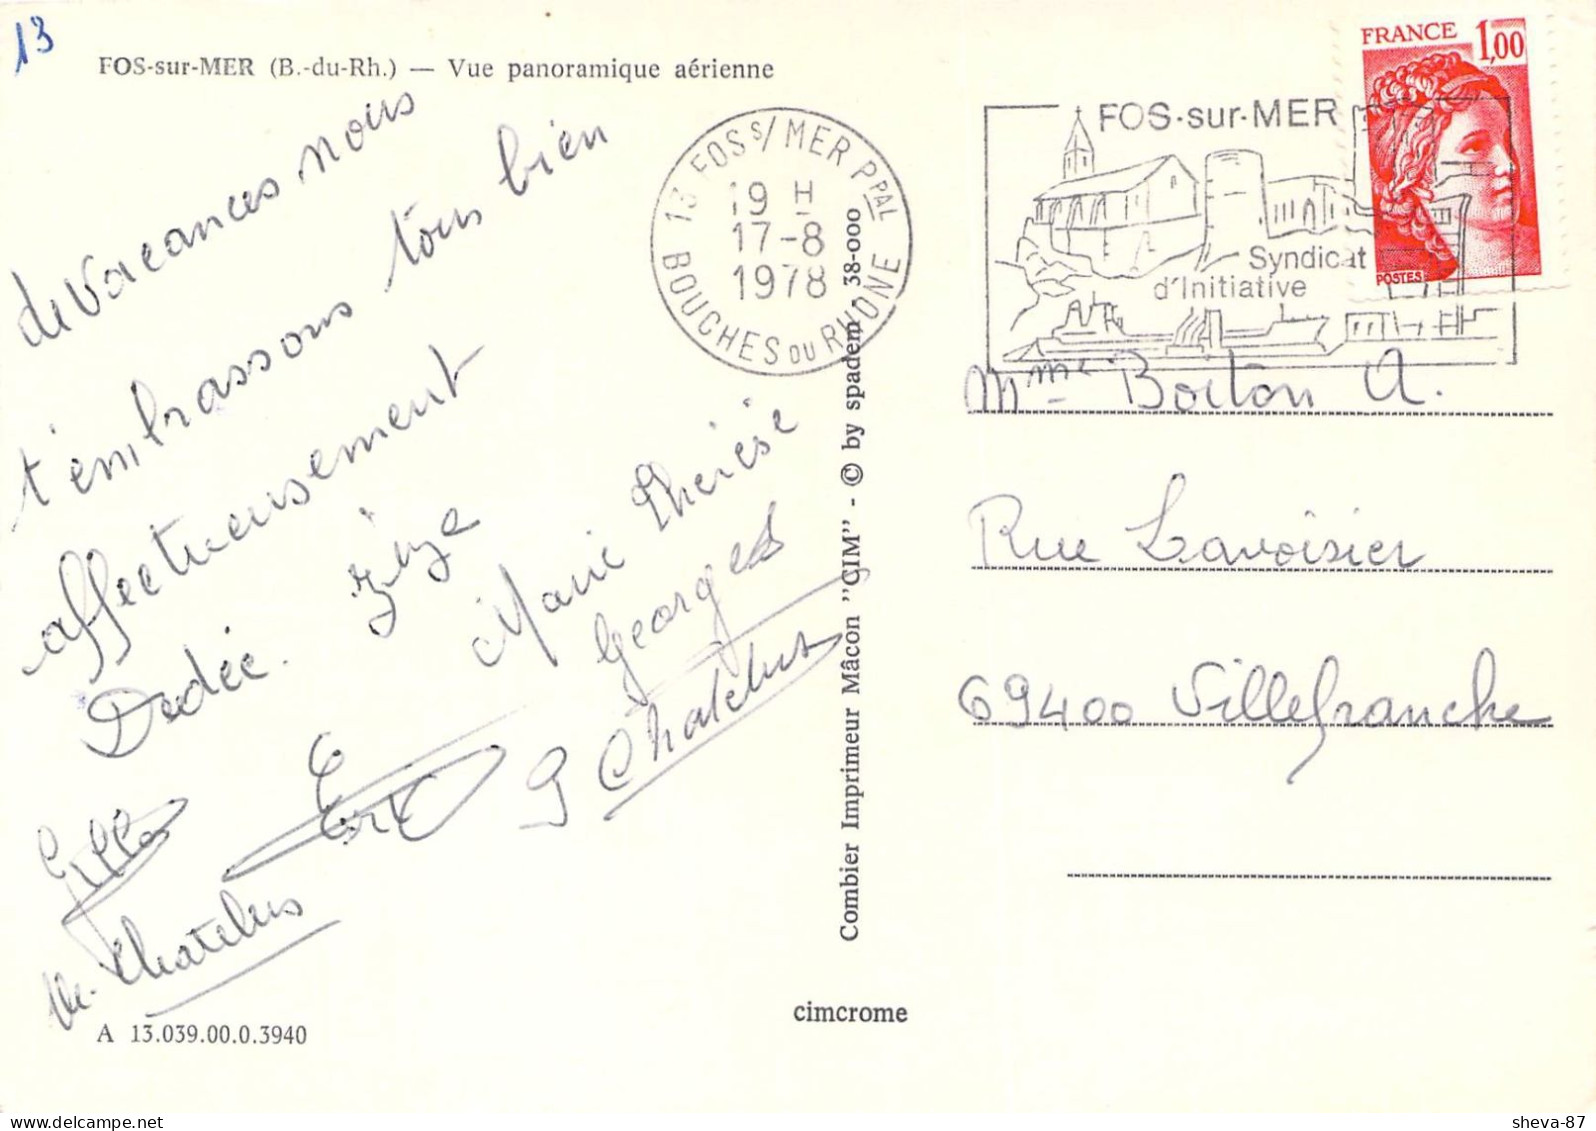 13
FOS-sur-MER (B.-du-Rh.) — Vue panoramique aérienne
de vacances nous
t'embrassons tous bien
affectueusement
Dedée. Zize
Marie Thérèse
Georges
Gilles Eric G Chatelus
M. Chatelus
A 13.039.00.0.3940
Combier Imprimeur Mâcon "CIM" - © by spadem - 38-000
cimcrome
13 FOS S/ MER PPAL
19 H
17-8
1978
BOUCHES DU RHONE
FOS-sur-MER
Syndicat
d'Initiative
FRANCE 1,00
POSTES
Mme Boiton A.
Rue Lavoisier
69400 Villefranche
sheva-87